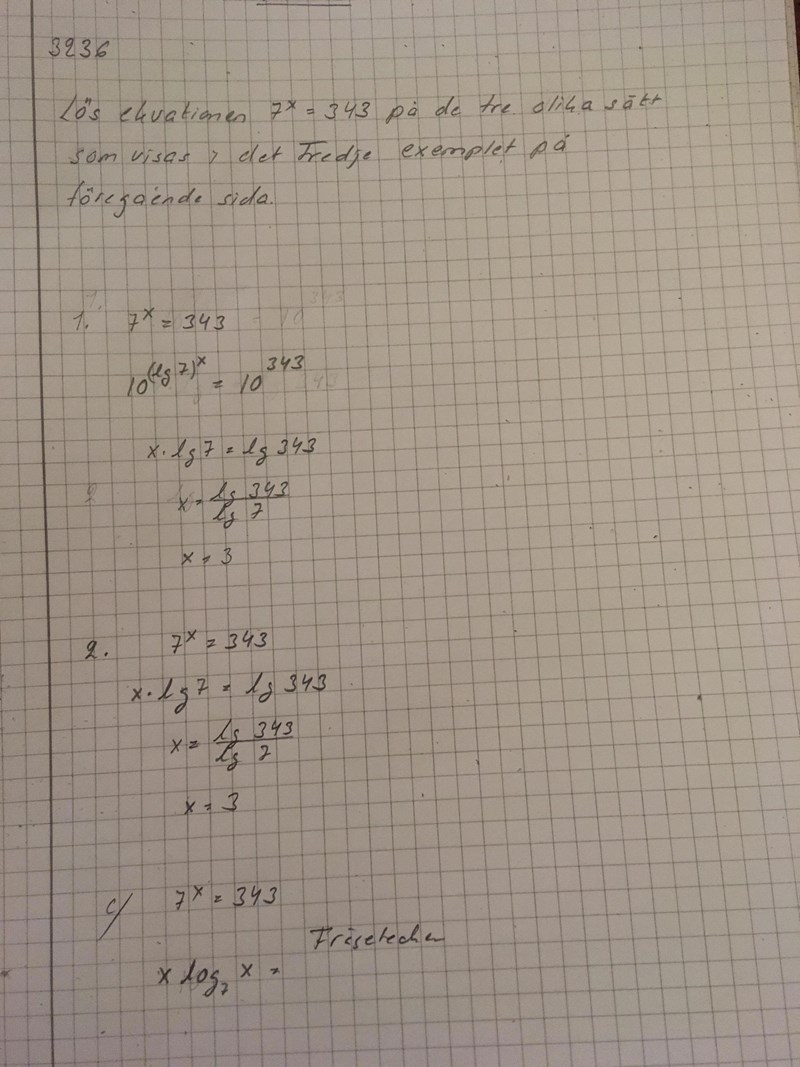 3236
Lös ekvationen 7^x = 343 på de tre olika sätt
som visas i det Tredje exemplet på
föregående sida.
1. 7^x = 343
10^(lg 7)^x = 10^343
x · lg 7 = lg 343
x = lg 343 / lg 7
x = 3
2. 7^x = 343
x · lg 7 = lg 343
x = lg 343 / lg 7
x = 3
c/ 7^x = 343
Frågetecken
x log₇ x =